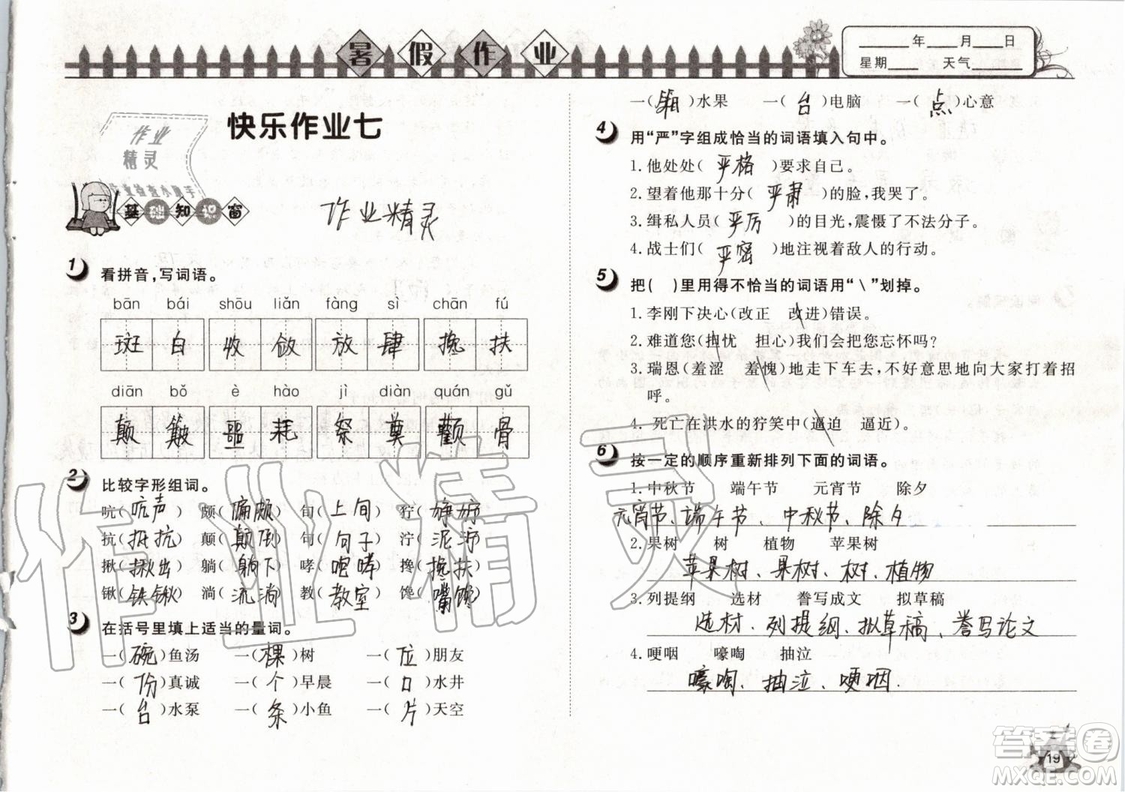 暑假作业
____年____月____日
星期____ 天气____
快乐作业七
作业
精灵
基础知识窗
作业精灵
1 看拼音,写词语。
bān bái shōu liǎn fàng sì chān fú
斑 白 收 敛 放 肆 搀 扶
diān bǒ è hào jì diàn quán gǔ
颠 簸 噩 耗 祭 奠 颧 骨
2 比较字形组词。
吭(吭声) 颇(偏颇) 旬(上旬) 狞(狰狞)
抗(抵抗) 颠(颠倒) 句(句子) 泞(泥泞)
揪(揪出) 躺(躺下) 哮(咆哮) 搀(搀扶)
锹(铁锹) 淌(流淌) 教(教室) 馋(嘴馋)
3 在括号里填上适当的量词。
一(碗)鱼汤 一(棵)树 一(位)朋友
一(份)真诚 一(个)早晨 一(口)水井
一(台)水泵 一(条)小鱼 一(片)天空
一(箱)水果 一(台)电脑 一(点)心意
4 用“严”字组成恰当的词语填入句中。
1.他处处(严格)要求自己。
2.望着他那十分(严肃)的脸,我哭了。
3.缉私人员(严厉)的目光,震慑了不法分子。
4.战士们(严密)地注视着敌人的行动。
5 把( )里用得不恰当的词语用“\”划掉。
1.李刚下决心(改正 改进)错误。
2.难道您(担忧 担心)我们会把您忘怀吗?
3.瑞恩(羞涩 羞愧)地走下车去,不好意思地向大家打着招
呼。
4.死亡在洪水的狞笑中(逼迫 逼近)。
6 按一定的顺序重新排列下面的词语。
1.中秋节 端午节 元宵节 除夕
元宵节、端午节、中秋节、除夕
2.果树 树 植物 苹果树
苹果树、果树、树、植物
3.列提纲 选材 誊写成文 拟草稿
选材、列提纲、拟草稿、誊写论文
4.哽咽 嚎啕 抽泣
嚎啕、抽泣、哽咽.
作业精灵
19
答案圈
MXQE.COM